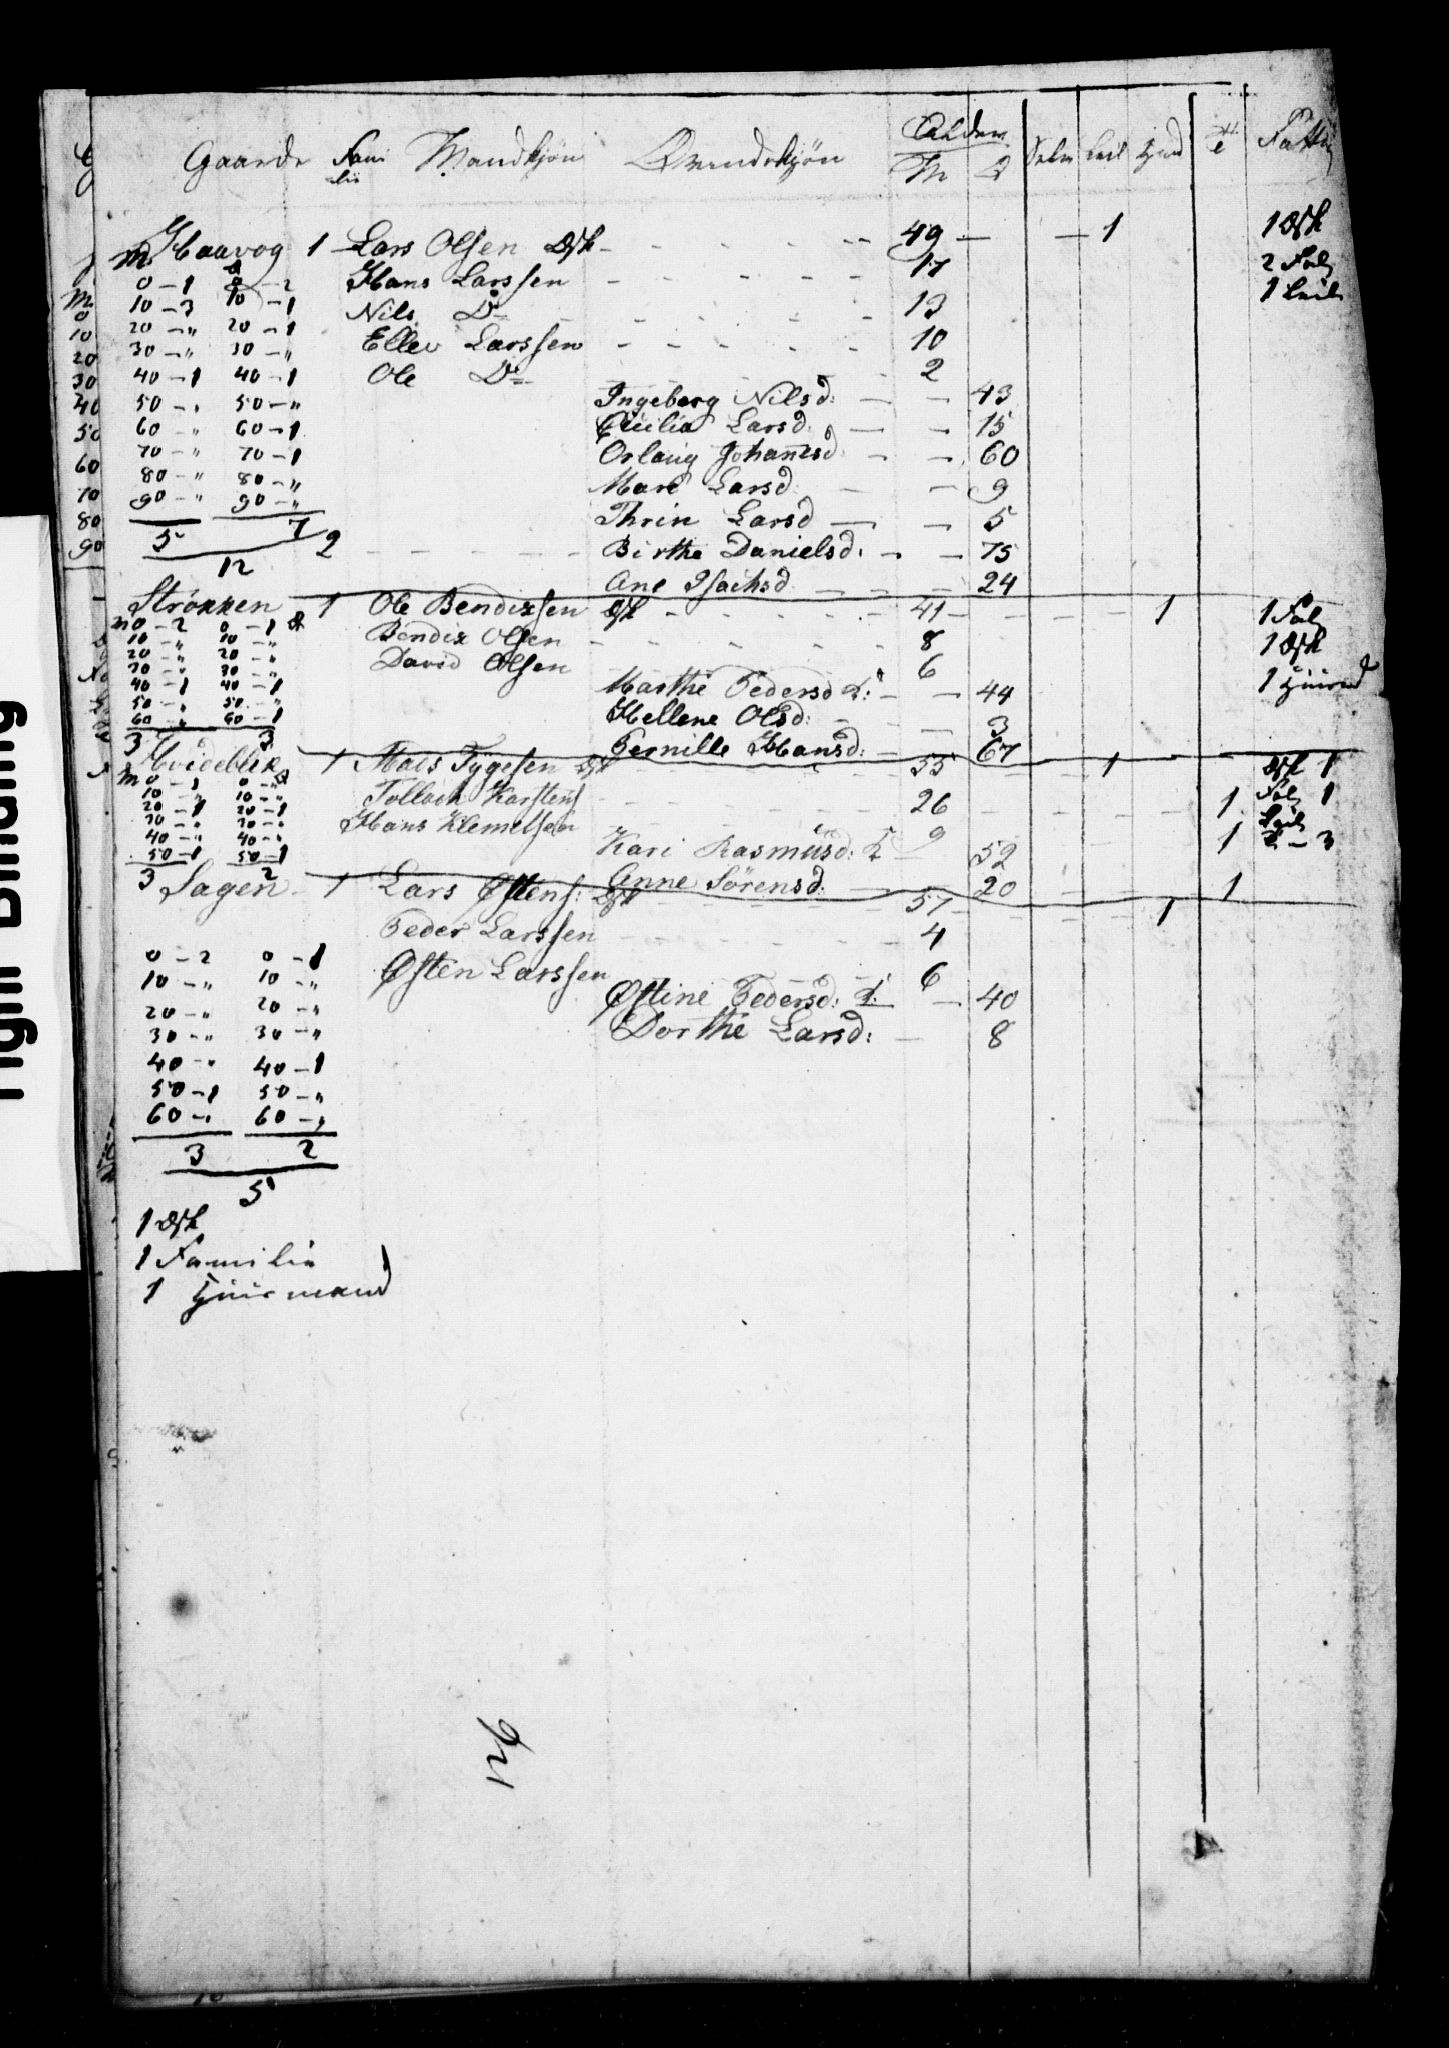 Gaarde Fami lie Mandkjön Qvindekjön Alder M Q Selv Leil Huus Fattig
Haavog 1 Lars Olsen 49 1
M Q Hans Larssen 17 2 Fal
0 - 1 0 - 2 Nils Do 13 1 Leil
10 - 3 10 - 1 Ellev Larssen 10
20 - " 20 - 1 Ole Do 2
30 - " 30 - "
40 - 1 40 - 1 Ingeborg Nilsd: 43
50 - " 50 - " Cicilia Larsd: 15
60 - " 60 - 1 Orlaug Johanesd 60
70 - " 70 - 1 Mare Larsd 9
80 - " 80 - " Thrin Larsd 5
90 - " 90 - "
5 7 2 Birthe Danielsd: 75
12 Ane Isachsd 24
Strøkken 1 Ole Bendixsen 41 1 1 Fal
M 0 - 2 0 - 1 Q Bendix Olsen 8
10 - " 10 - " David Olsen 6
20 - " 20 - "
30 - " 30 - " Marthe Pedersd 44
40 - 1 40 - 1 Hellene Olsd: 3
50 - " 50 - "
60 - " 60 - 1 Pernille Hansd: 67
3 3
Hvidebek 1 Mads Tygesen 55 1
M 0 - 1 0 - " Q Tollach Karstens 26 1
10 - " 10 - " Hans Klemetsen 9 1
20 - 1 20 - 1
30 - " 30 - " Kari Rasmusd: 52
40 - " 40 - "
50 - 1 50 - 1 Anne Sörensd: 20 1
3 2
Sagen 1 Lars Østens: 57 1
Peder Larssen 4
0 - 2 0 - 1 Østen Larssen 6
10 - " 10 - " Østine Pedersd: 40
20 - " 20 - " Dorthe Larsd: 8
30 - " 30 - "
40 - " 40 - 1
50 - 1 50 - "
60 - " 60 - "
3 2
5
1 Familie
1 Huusmand